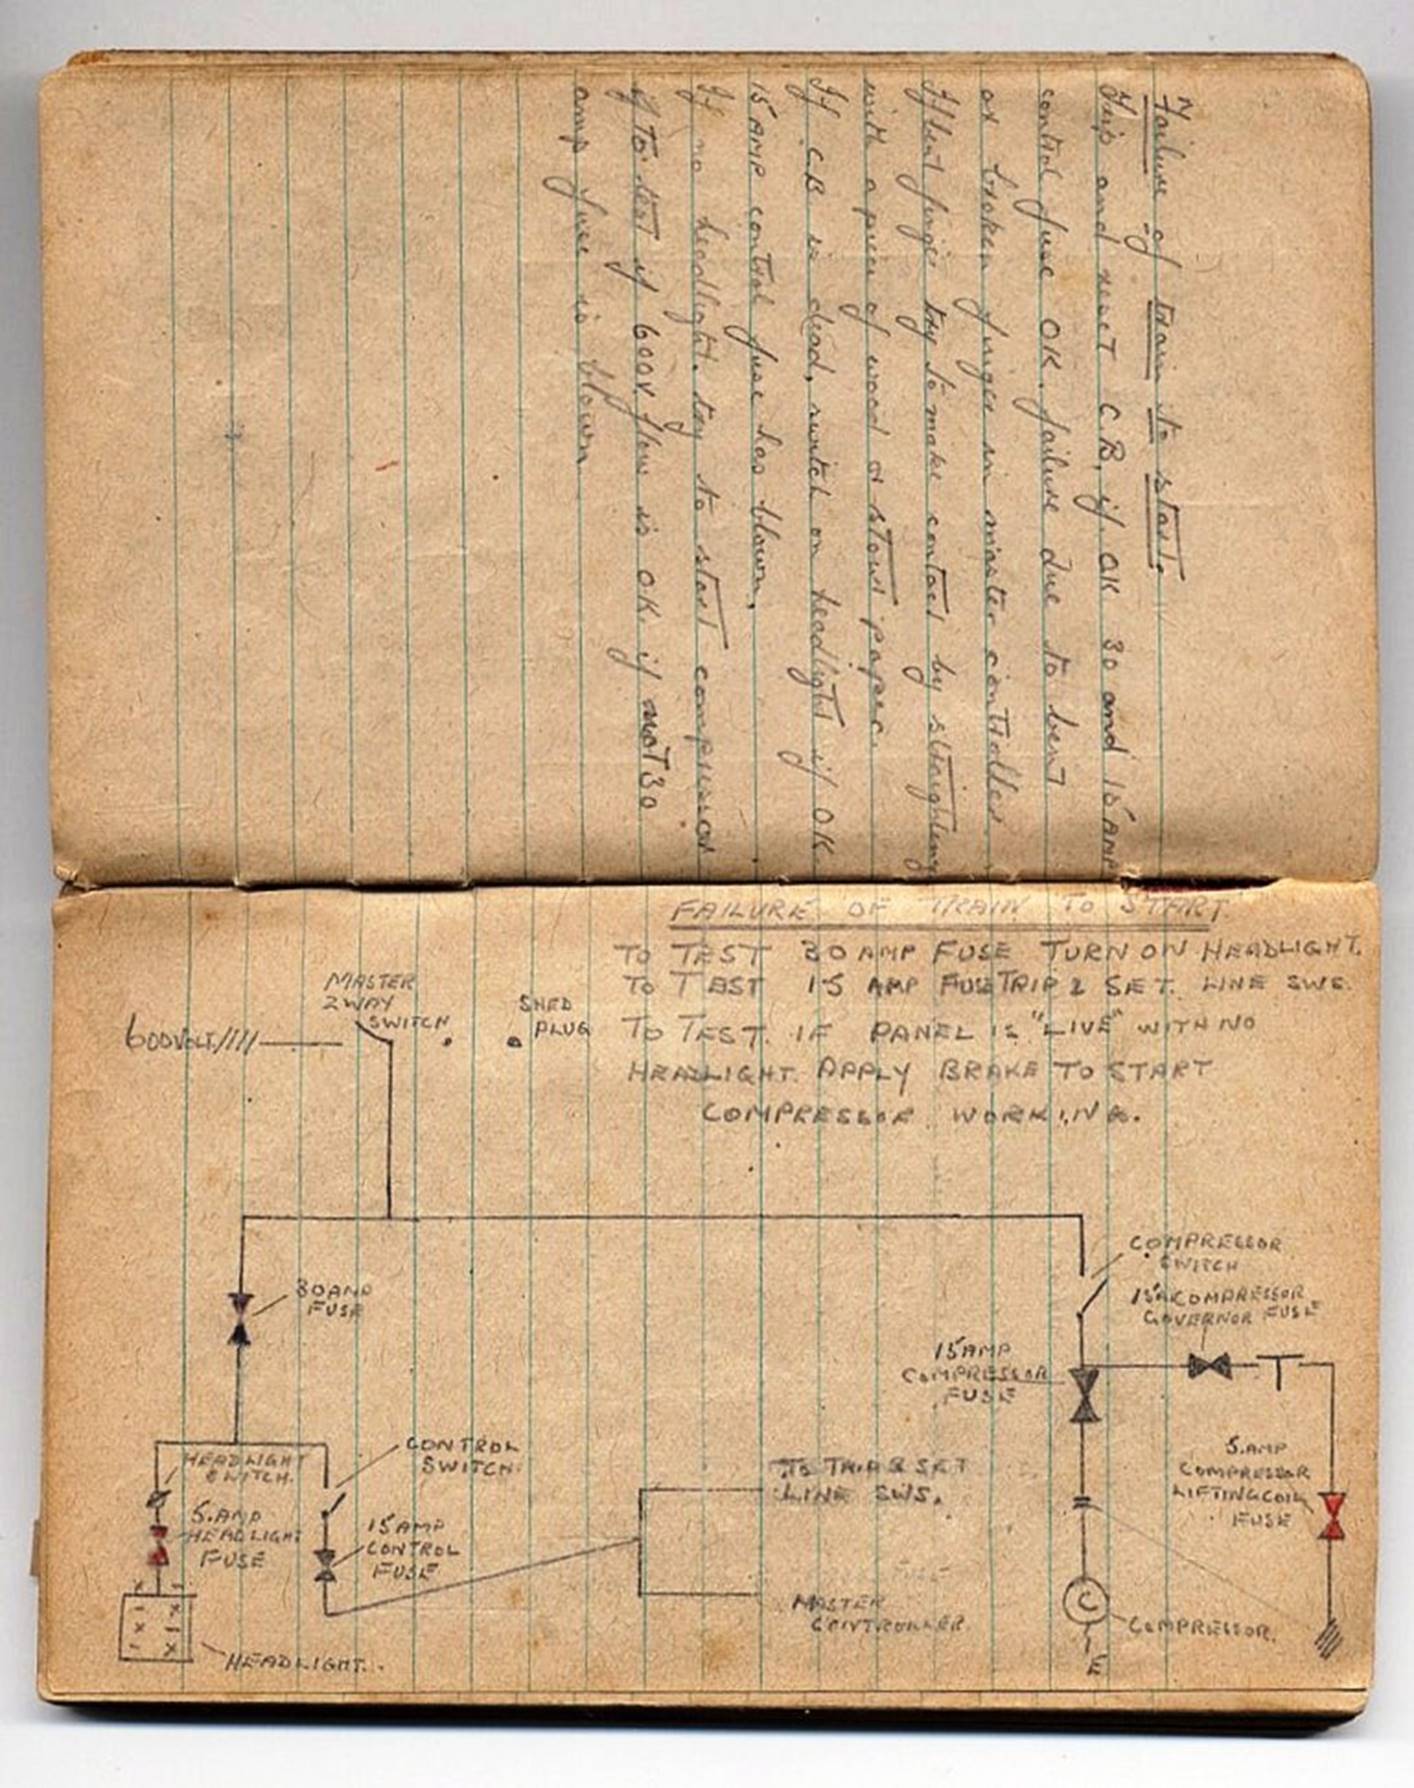 Failure of train to start.
Trip and reset C.B, if OK 30 and 15 AMP
control fuse OK. failure due to bent
or broken finger in master controller.
If bent finger try to make contact by straightening
with a piece of wood or stout paper.
If C.B is dead, switch on headlight if OK
15 AMP control fuse has blown,
If no headlight. try to start compressor
to test if 600V flow is OK. if not 30
amp fuse is blown
FAILURE OF TRAIN TO START.
TO TEST 30 AMP FUSE TURN ON HEADLIGHT.
TO TEST 15 AMP FUSE TRIP & SET. LINE SWS.
TO TEST. IF PANEL IS "LIVE" WITH NO
HEADLIGHT. APPLY BRAKE TO START
COMPRESSOR WORKING.
MASTER
2 WAY
SWITCH
SHED
PLUG
600 VOLT
COMPRESSOR
SWITCH
30 AMP
FUSE
15A COMPRESSOR
GOVERNOR FUSE
15 AMP
COMPRESSOR
FUSE
CONTROL
SWITCH.
HEADLIGHT
SWITCH.
5. AMP
HEADLIGHT
FUSE
15 AMP
CONTROL
FUSE
TO TRIP & SET
LINE SWS.
5. AMP
COMPRESSOR
LIFTING COIL
FUSE
MASTER
CONTROLLER
COMPRESSOR.
E
HEADLIGHT.